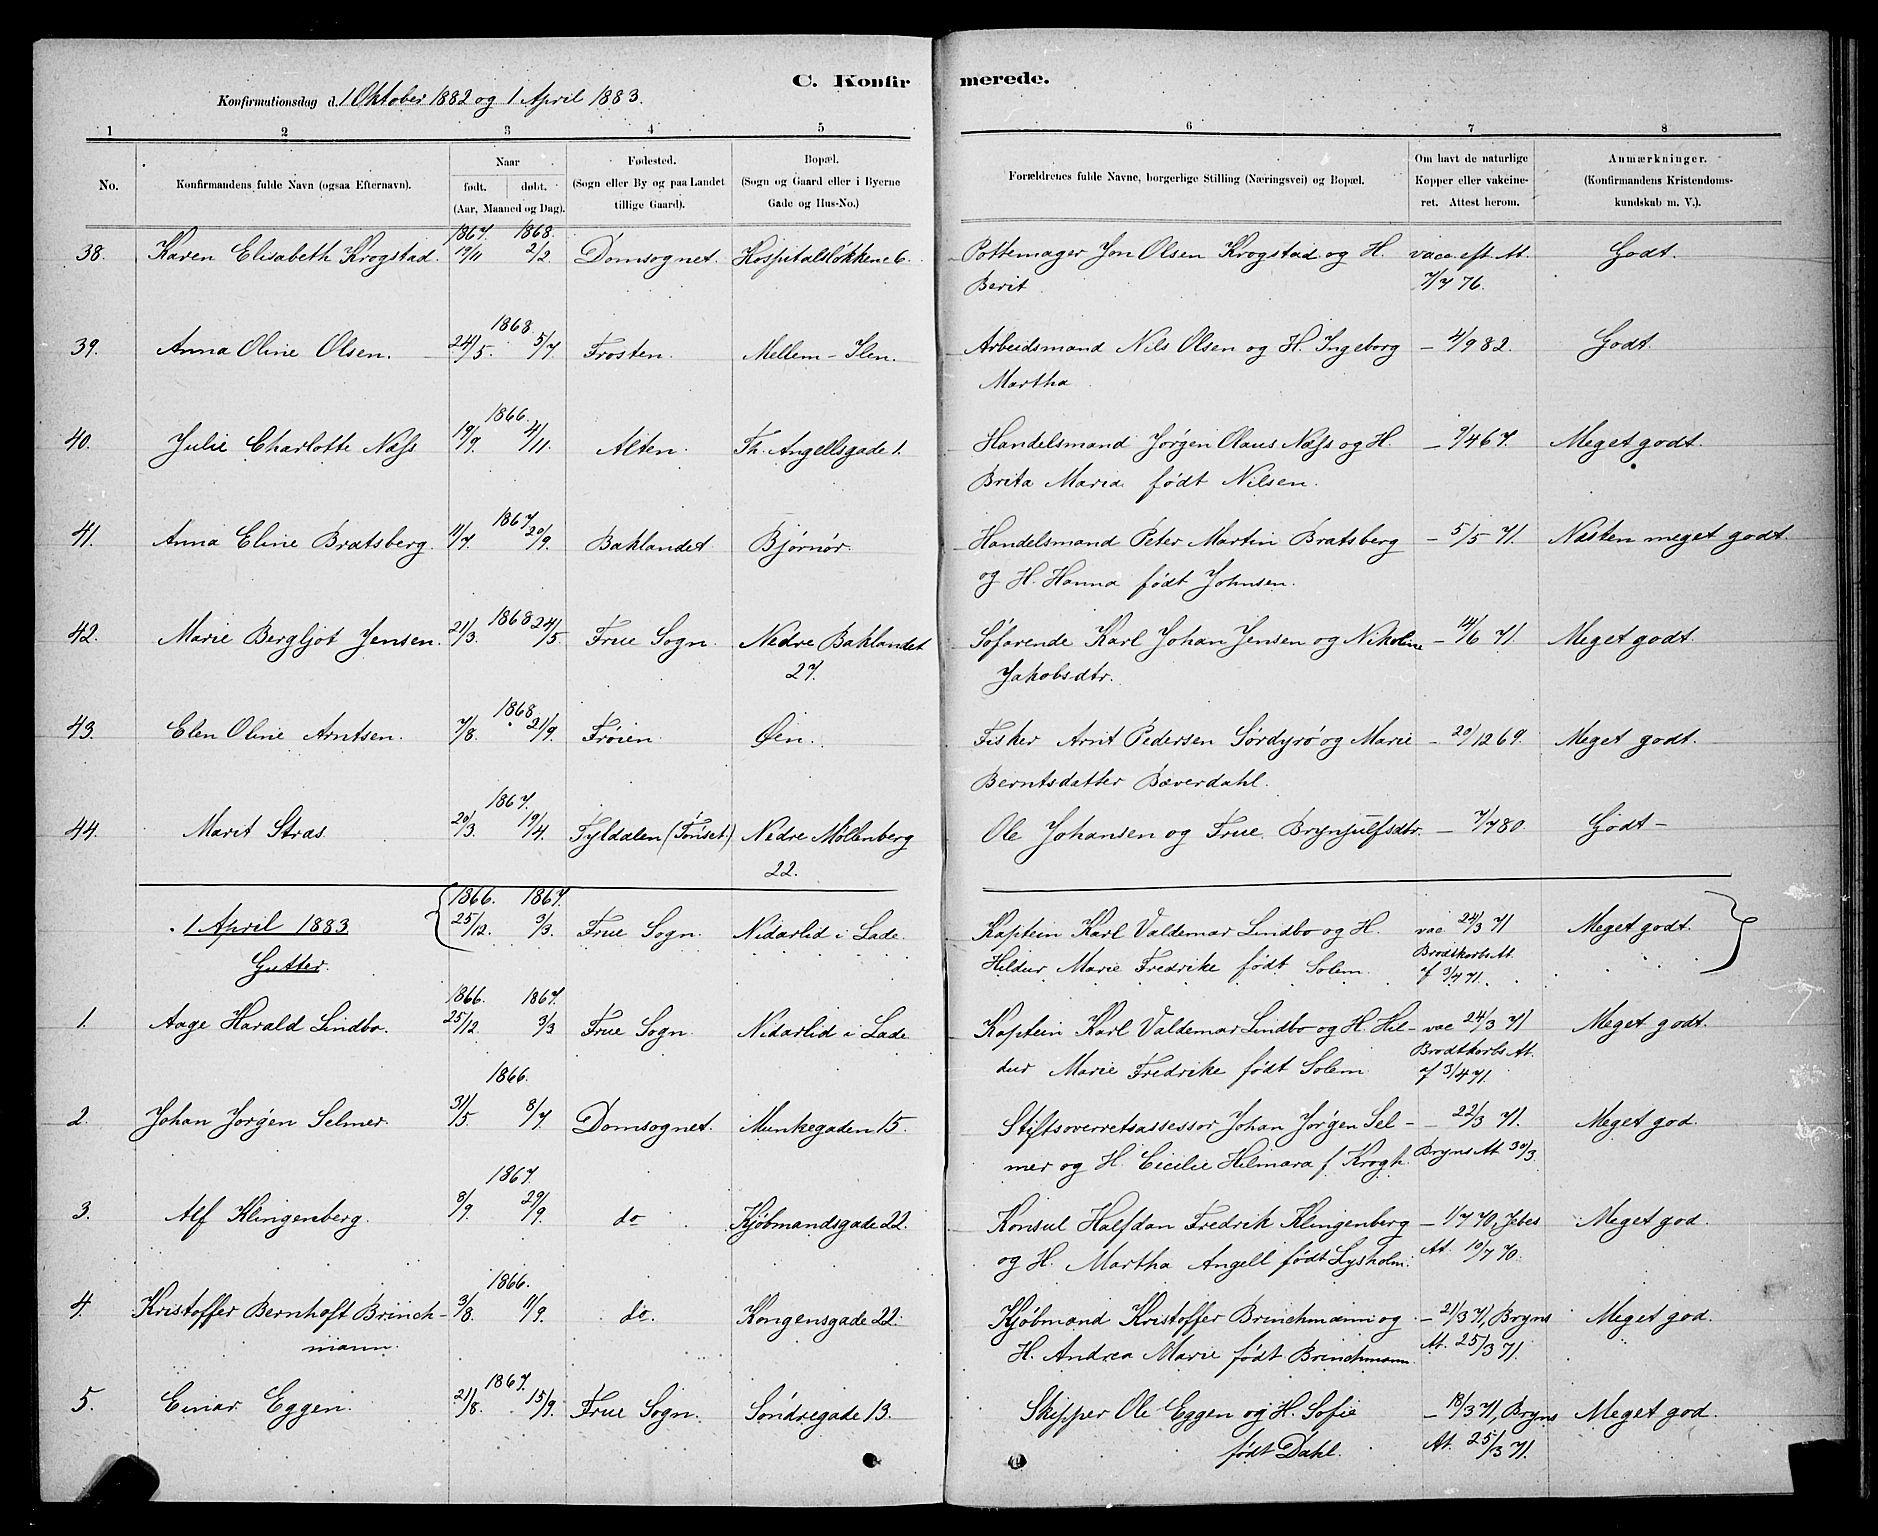 C. Konfirmerede.
Konfirmationsdag d. 1 Oktober 1882 og 1 April 1883.
1 2 3 4 5 6 7 8
No. Konfirmandens fulde Navn (ogsaa Efternavn). Naar født. døbt. (Aar, Maaned og Dag). Fødested. (Sogn eller By og paa Landet tillige Gaard). Bopæl. (Sogn og Gaard eller i Byerne Gade og Hus-No.) Forældrenes fulde Navne, borgerlige Stilling (Næringsvei) og Bopæl. Om havt de naturlige Kopper eller vakcineret. Attest herom. Anmærkninger. (Konfirmandens Kristendomskundskab m. V.).
1867. 1868.
38. Karen Elisabeth Krogstad. 19/11 2/2 Domsognet. Hospitalsløkkene 6. Pottemager Jon Olsen Krogstad og H. vacc. eft. At. Godt.
Berit 7/7 76.
1868.
39. Anna Oline Olsen. 24/5. 5/7 Frosten. Mellem-Ilen. Arbeidsmand Nils Olsen og H. Ingeborg — 4/9 82. Godt.
Martha
1866.
40. Julie Charlotte Næss 19/9 4/11. Alten. Th. Angellsgade 1. Handelsmand Jørgen Olaus Næss og H. — 9/4 67. Meget godt.
Brita Maria født Nilsen.
1867
41. Anna Eline Bratsberg. 11/7. 20/9. Baklandet. Bjørnør. Handelsmand Peter Martin Bratsberg — 5/5 71. Næsten meget godt.
og H. Hanna født Johnsen.
1868
42. Marie Bergljot Jensen. 21/3. 24/5. Frue Sogn. Nedre Baklandet Søfarende Karl Johan Jensen og Nikoline — 14/6 71. Meget godt.
27. Jakobsdtr.
1868
43. Elen Oline Arntsen. 7/8. 21/9. Frøien. Øen. Fisker Arnt Pedersen Sørdyrø og Marie — 20/12 69. Meget godt.
Berntsdatter Bæverdahl.
1867.
44. Marit Stræs. 20/3. 19/4. Tyldalen (Tønset.) Nedre Møllenberg Ole Johansen og Frue Brynjulfsdtr. — 7/7 80. Godt —
22.
1866. 1867.
1 April 1883 25/12. 3/3. Frue Sogn. Nidarlid i Lade. Kaptein Karl Valdemar Lindbo og H. vac 24/3 71 Meget godt.
Gutter. Hildur Marie Fredrike født Solem. Brodtkorbs At. f 3/4 71.
1866. 1867.
1. Aage Harald Lindbo. 25/12. 3/3 Frue Sogn. Nidarlid i Lade. Kaptein Karl Valdemar Lindbo og H. Hil- vac 24/3 71 Meget godt.
dur Marie Fredrike født Solem Brodtkorbs At. f 3/4 71.
1866.
2. Johan Jørgen Selmer. 31/5 8/7 Domsognet. Munkegaden 15. Stiftsoverretsassessor Johan Jørgen Sel- — 22/3 71. Meget god.
mer og H. Cicilie Hilmara f. Krogh. Bryns At. 30/3.
1867.
3. Alf Klingenberg. 8/9. 29/9. do Kjøbmandsgade 22. Konsul Halfdan Fredrik Klingenberg — 1/7 70, Jebes Meget god.
og H. Martha Angell født Lysholm. At. 10/7 70.
1866.
4. Kristoffer Bernhoft Brinch- 3/8. 11/9. do. Kongensgade 22. Kjøbmand Kristoffer Brinchmann og — 21/3 71, Bryns Meget god.
mann. H. Andrea Marie født Brinchmann. At. 25/3 71.
1867.
5. Einar Eggen. 21/8. 15/9. Frue Sogn. Søndregade 13. Skipper Ole Eggen og H. Sofie — 18/3 71, Bryns Meget god.
født Dahl. At. 25/3 71.